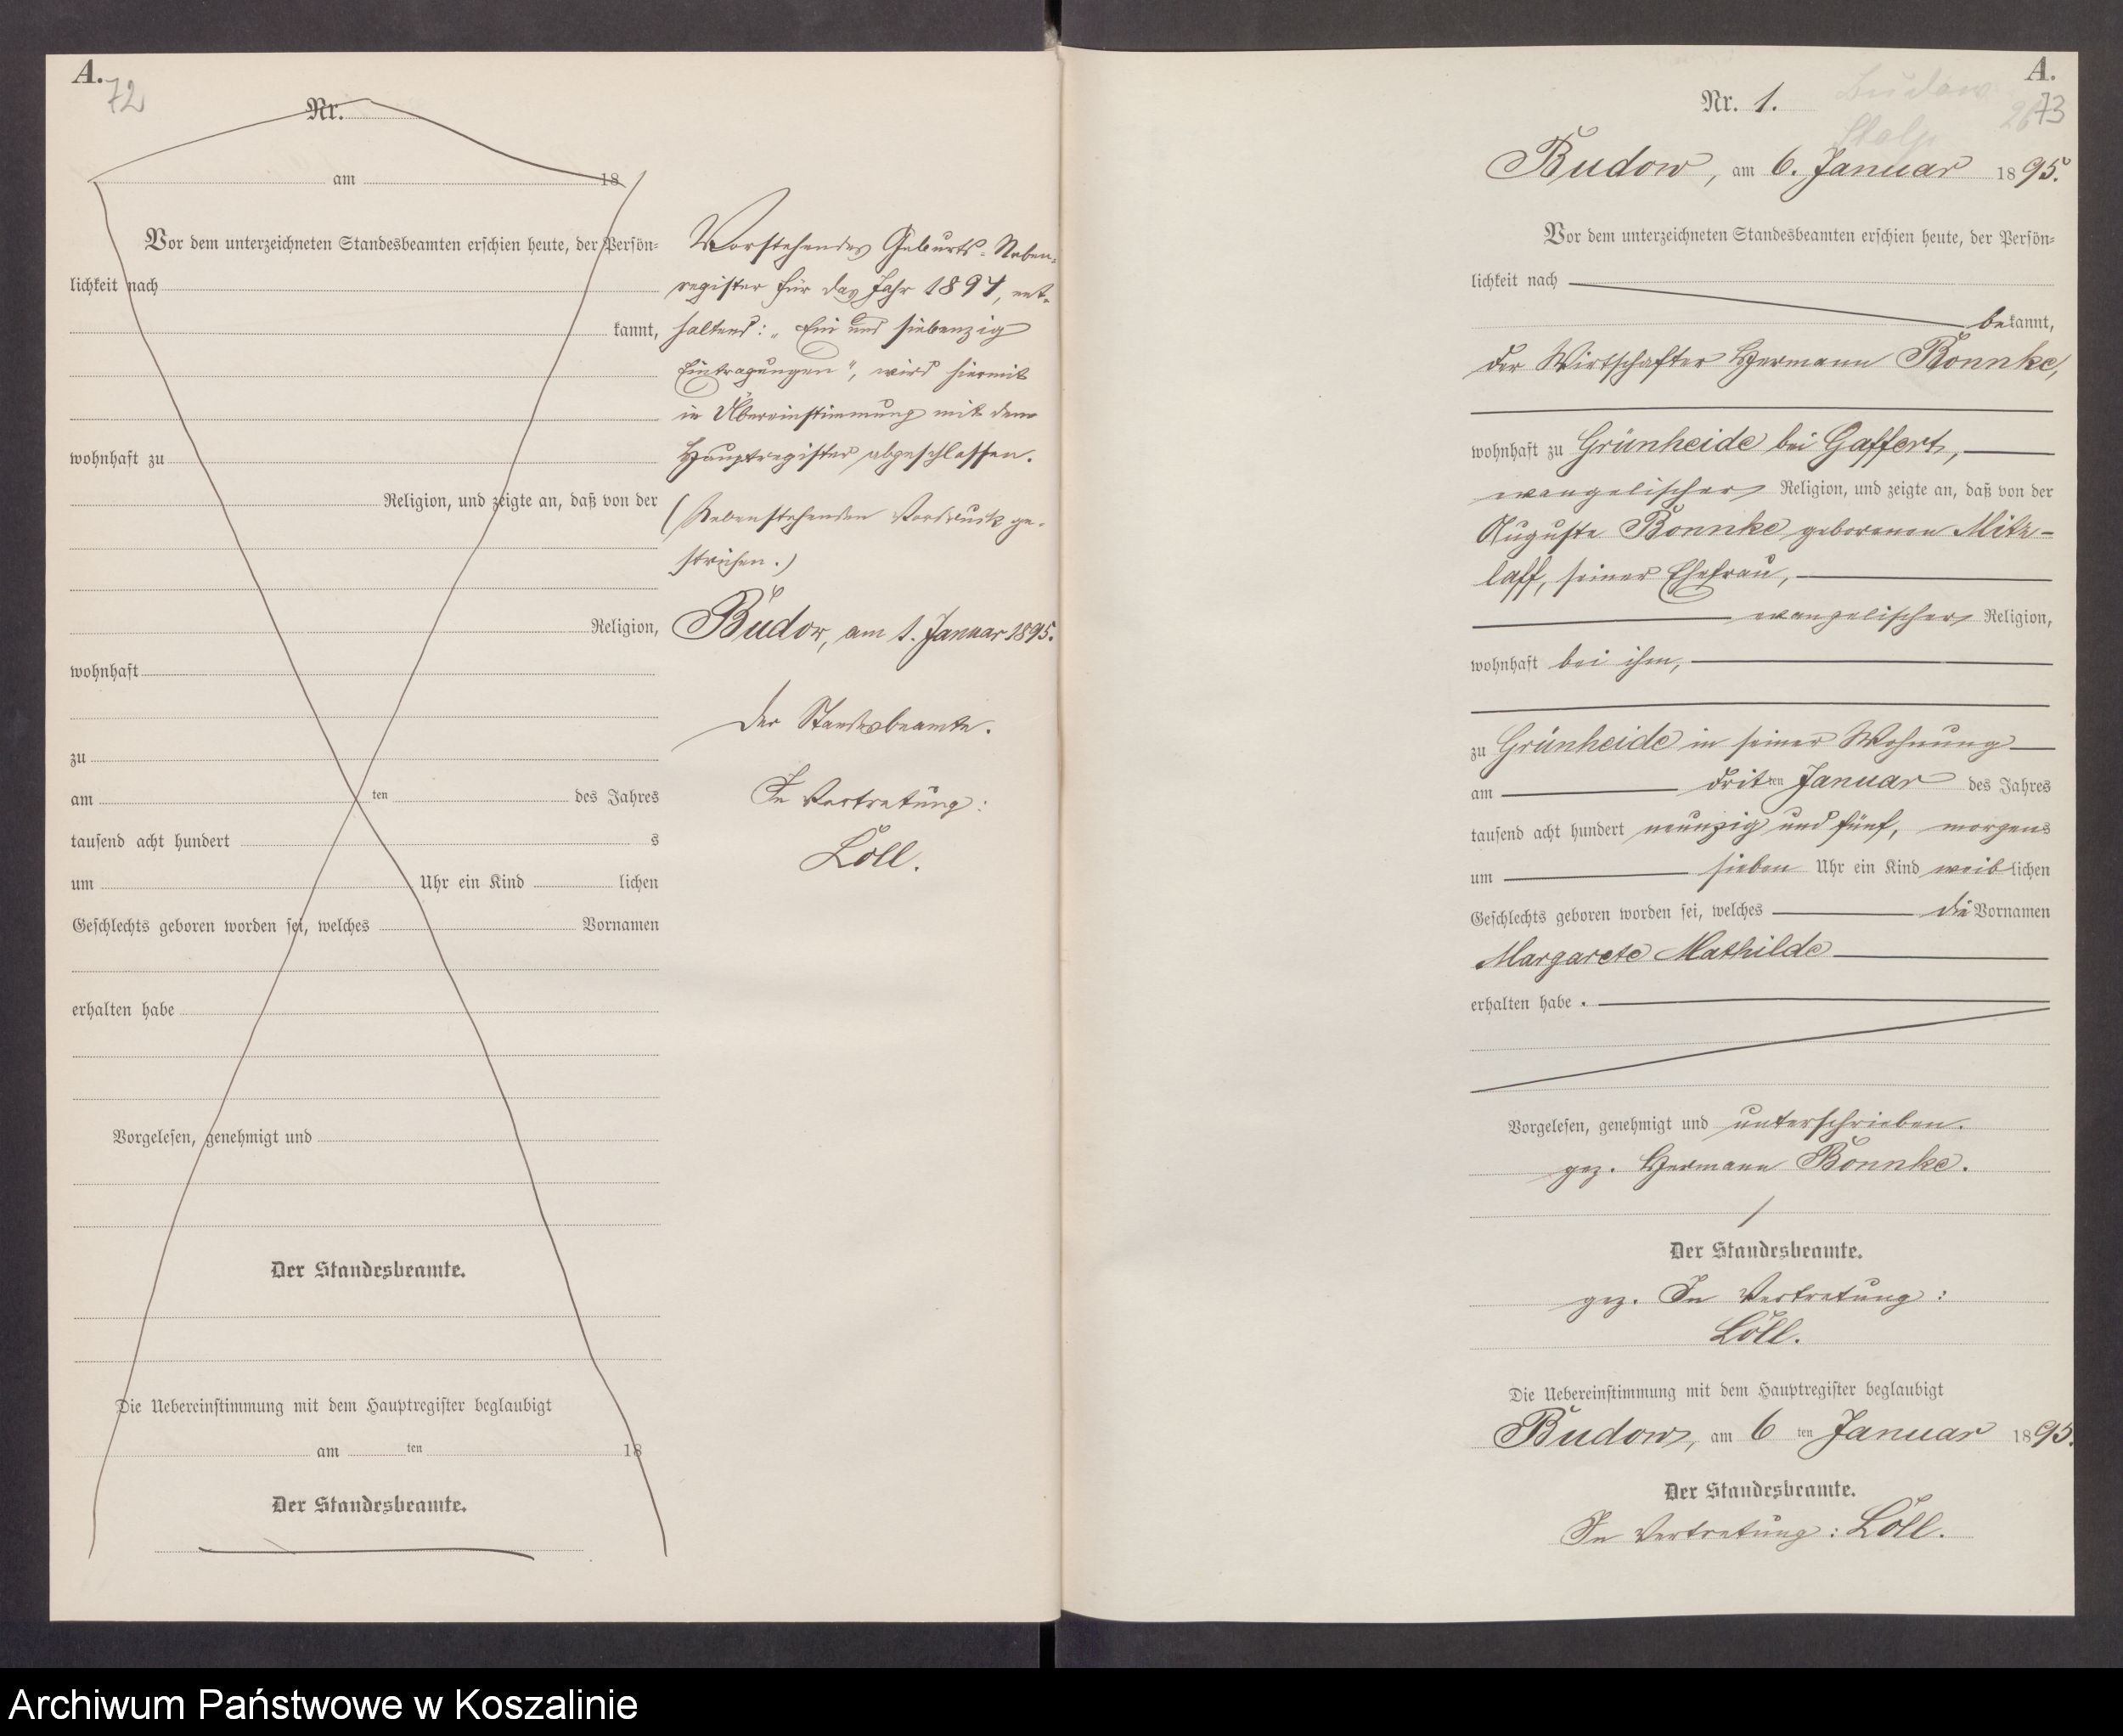 A.
72
Nr.
am 18
Vor dem unterzeichneten Standesbeamten erschien heute, der Persön-
lichkeit nach
kannt,
wohnhaft zu
Religion, und zeigte an, daß von der
Religion,
wohnhaft
zu
am ten des Jahres
tausend acht hundert s
um Uhr ein Kind lichen
Geschlechts geboren worden sei, welches Vornamen
erhalten habe
Vorgelesen, genehmigt und
Der Standesbeamte.
Die Uebereinstimmung mit dem Hauptregister beglaubigt
am ten 18
Der Standesbeamte.
Vorstehendes Geburts-Neben-
register für das Jahr 1894, ent-
haltend: „Ein und siebenzig
Eintragungen", wird hiermit
in Übereinstimmung mit dem
Hauptregister abgeschlossen.
(Nebenstehenden Vordruck ge-
strichen.)
Budow, am 1. Januar 1895.
Der Standesbeamte.
In Vertretung:
Löll.
A.
Budow
73
Stolp
Nr. 1.
Budow, am 6. Januar 1895.
Vor dem unterzeichneten Standesbeamten erschien heute, der Persön-
lichkeit nach
bekannt,
der Wirtschafter Hermann Bonnke,
wohnhaft zu Grünheide bei Gaffert,
evangelischer Religion, und zeigte an, daß von der
Auguste Bonnke geborenen Mitz-
laff, seiner Ehefrau,
evangelischer Religion,
wohnhaft bei ihm,
zu Grünheide in seiner Wohnung
am dritten Januar des Jahres
tausend acht hundert neunzig und fünf, morgens
um sieben Uhr ein Kind weiblichen
Geschlechts geboren worden sei, welches die Vornamen
Margarete Mathilde
erhalten habe.
Vorgelesen, genehmigt und unterschrieben.
gez. Hermann Bonnke.
Der Standesbeamte.
gez. In Vertretung:
Löll.
Die Uebereinstimmung mit dem Hauptregister beglaubigt
Budow, am 6 ten Januar 1895.
Der Standesbeamte.
In Vertretung: Löll.
Archiwum Państwowe w Koszalinie